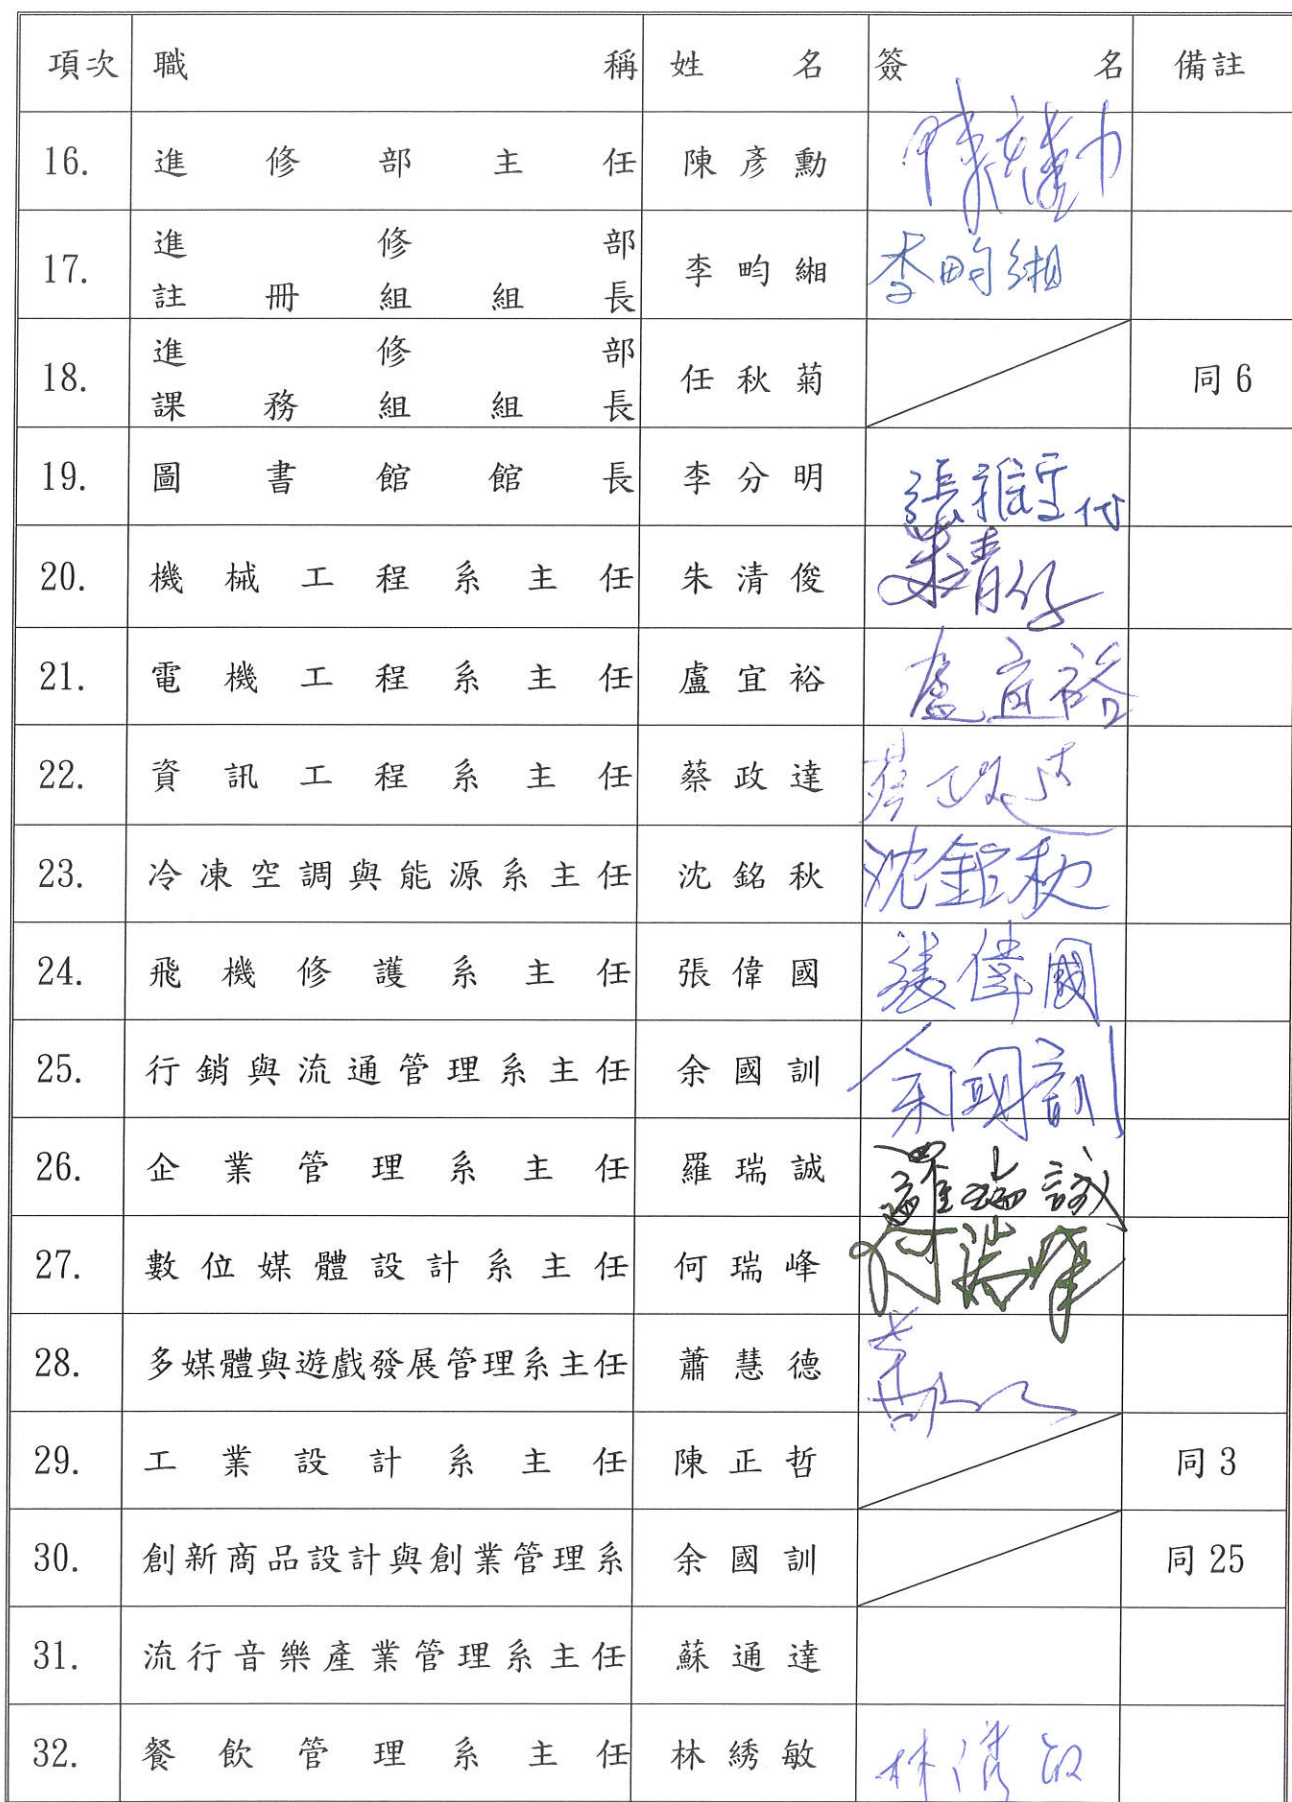 項次 職稱 姓名 簽名 備註
16. 進修部主任 陳彥勳 陳彥勳
17. 進修部 李畇緗 李畇緗
註冊組組長
18. 進修部 任秋菊 同6
課務組組長
19. 圖書館館長 李分明 代
20. 機械工程系主任 朱清俊
21. 電機工程系主任 盧宜裕 盧宜裕
22. 資訊工程系主任 蔡政達 蔡政達
23. 冷凍空調與能源系主任 沈銘秋 沈銘秋
24. 飛機修護系主任 張偉國 張偉國
25. 行銷與流通管理系主任 余國訓 余國訓
26. 企業管理系主任 羅瑞誠 羅瑞誠
27. 數位媒體設計系主任 何瑞峰 何瑞峰
28. 多媒體與遊戲發展管理系主任 蕭慧德
29. 工業設計系主任 陳正哲 同3
30. 創新商品設計與創業管理系 余國訓 同25
31. 流行音樂產業管理系主任 蘇通達
32. 餐飲管理系主任 林綉敏